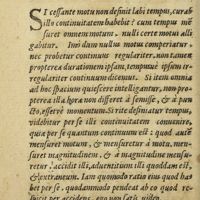 SI cessante motu non desinit labi tempus, cur ab
illo continuitatem habebit? cum tempus me
suret omnem motum, nulli certè motus alli
gabitur. Imò dum nullus motus comperiatur,
nec probetur continuus regulariter, non tamen
propterea durationem ipsam, tempusue ipsum ir-
regulariter continuum dicemus. Si item omnia
ad hoc spacium quiescere intelligantur, non pro
pterea illa hora non differet à semisse, & à pun
cto, esséntve momentò. Omnino enim tempus,
videbitur per se illi continuitatem conuenire,
quia per se quantum continuum est: quod autè
mensuret motum, & mensuretur à motu, men
suret magnitudinem, & à magnitudine mensu
retur, accidit illi, aduentitium illi quoddam est,
& extraneum. Iam quomodo ratio eius quod ha
bet per se, quodammodo pendeat ab eo quod re
spicit per accidens, ego non satis video.